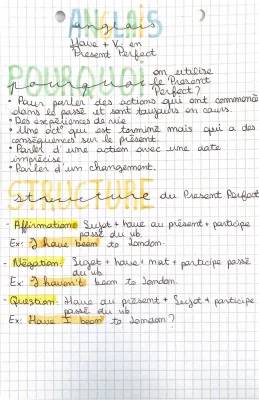 ANGLAIS
anglais
Have + V. en
Present Perfect
POURQUOI
pourquoi on utilise
le Present
Perfect?
• Pour parler des actions qui ont commencé
dans le passé et sont toujours en cours.
• Des expériences de vie
• Une act° qui est terminé mais qui a des
conséquences sur le présent.
• Parler d'une action avec une date
imprécise.
• Parler d'un changement.
STRUCTURE
structure du Present Perfect
- Affirmation: Sujet + have au présent + participe
passé du vb.
Ex: I have been to London.
- Négation: Sujet + have + not + participe passé
du vb
Ex: I haven't been to London.
- Question: Have au présent + Sujet + participe
passé du vb
Ex: Have I been to London?